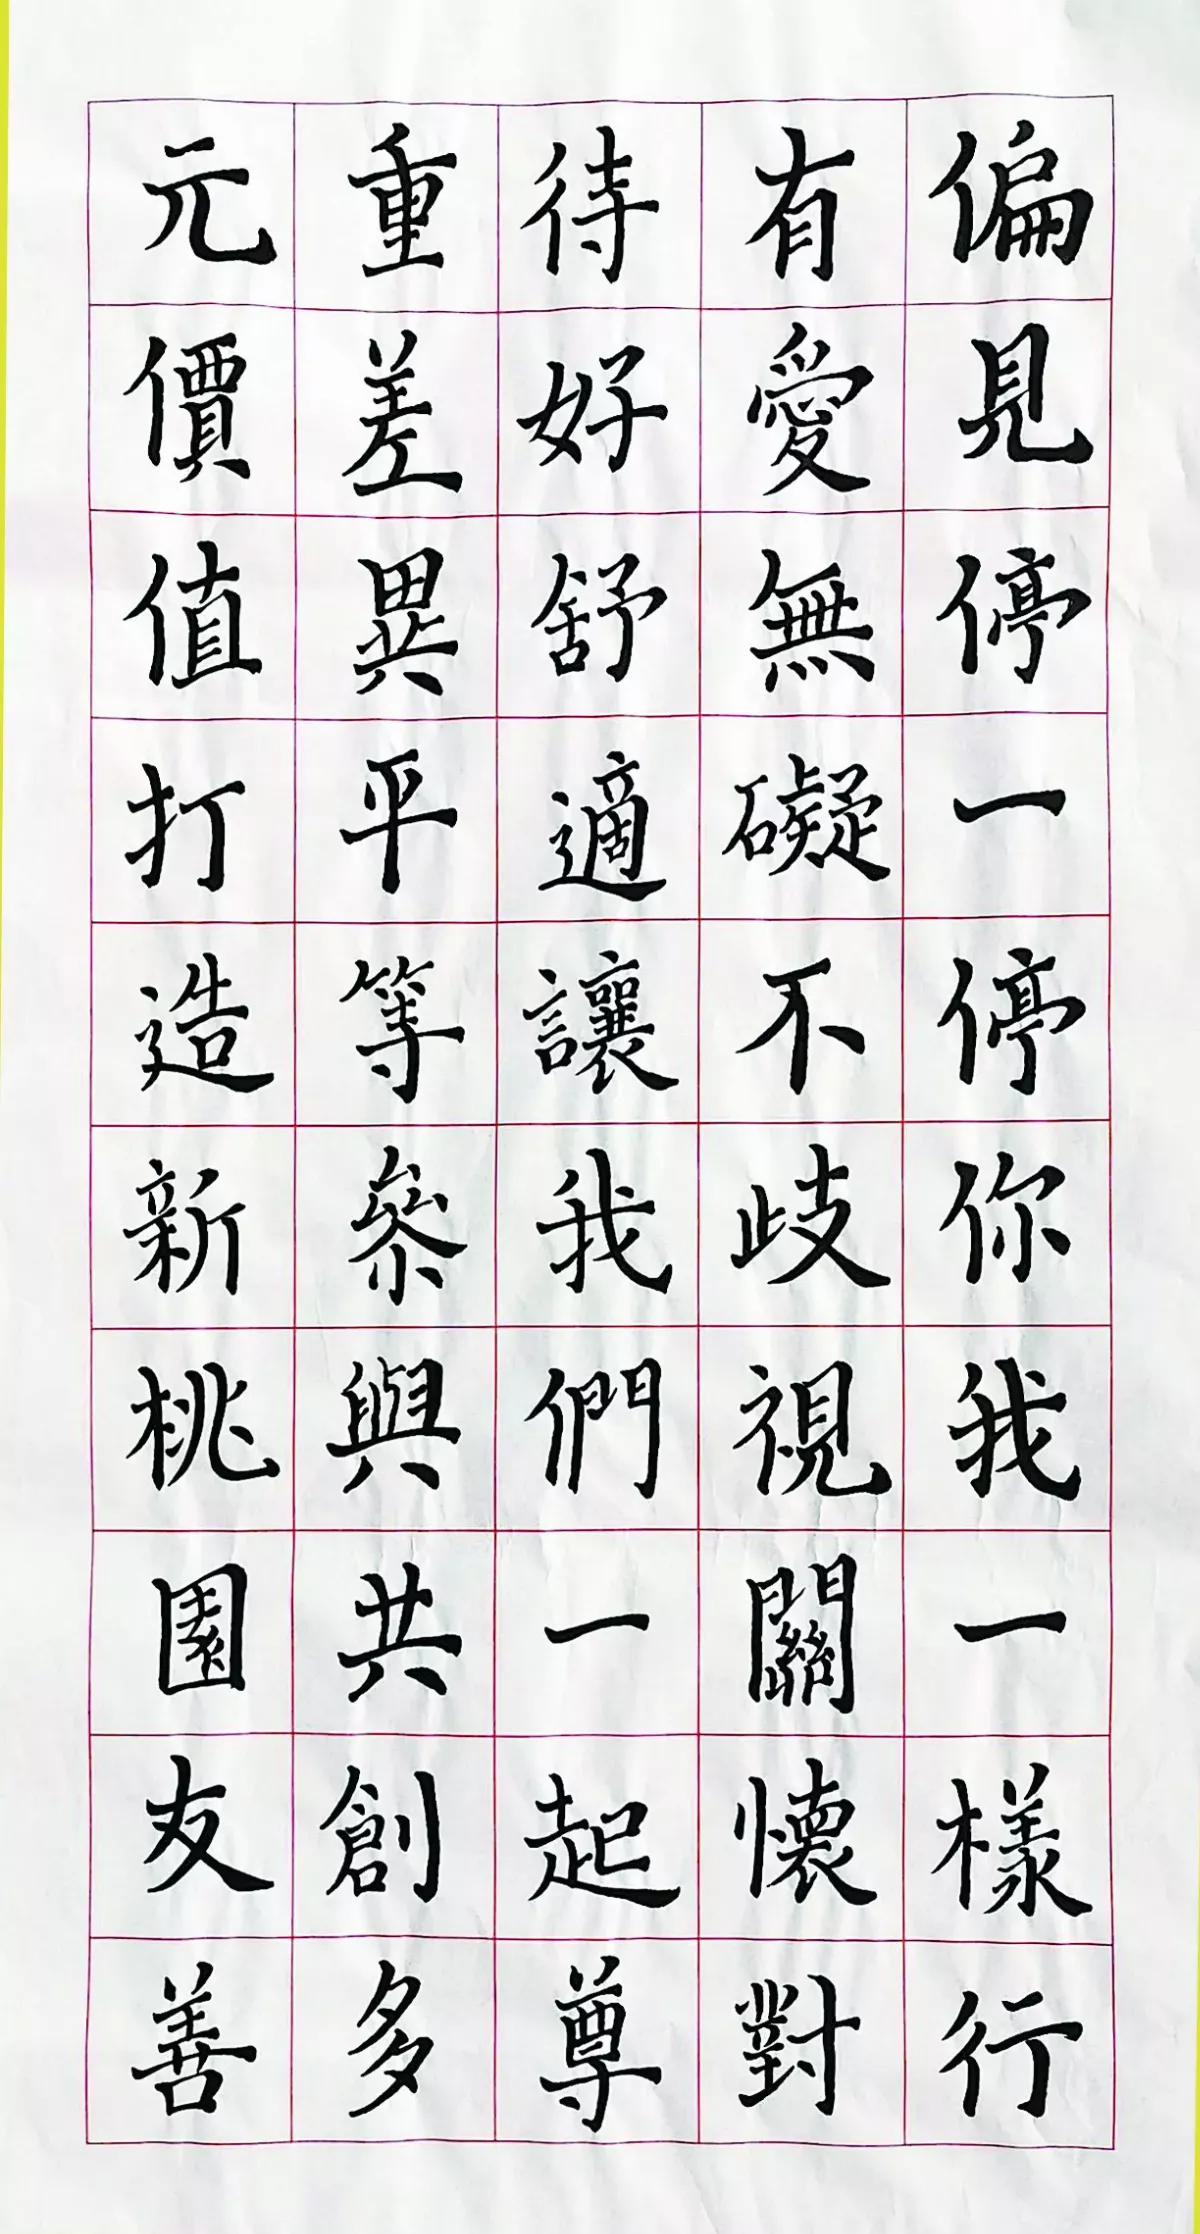 偏見停一停你我一樣行
有愛無礙不歧視關懷對
待好舒適讓我們一起尊
重差異平等參與共創多
元價值打造新桃園友善